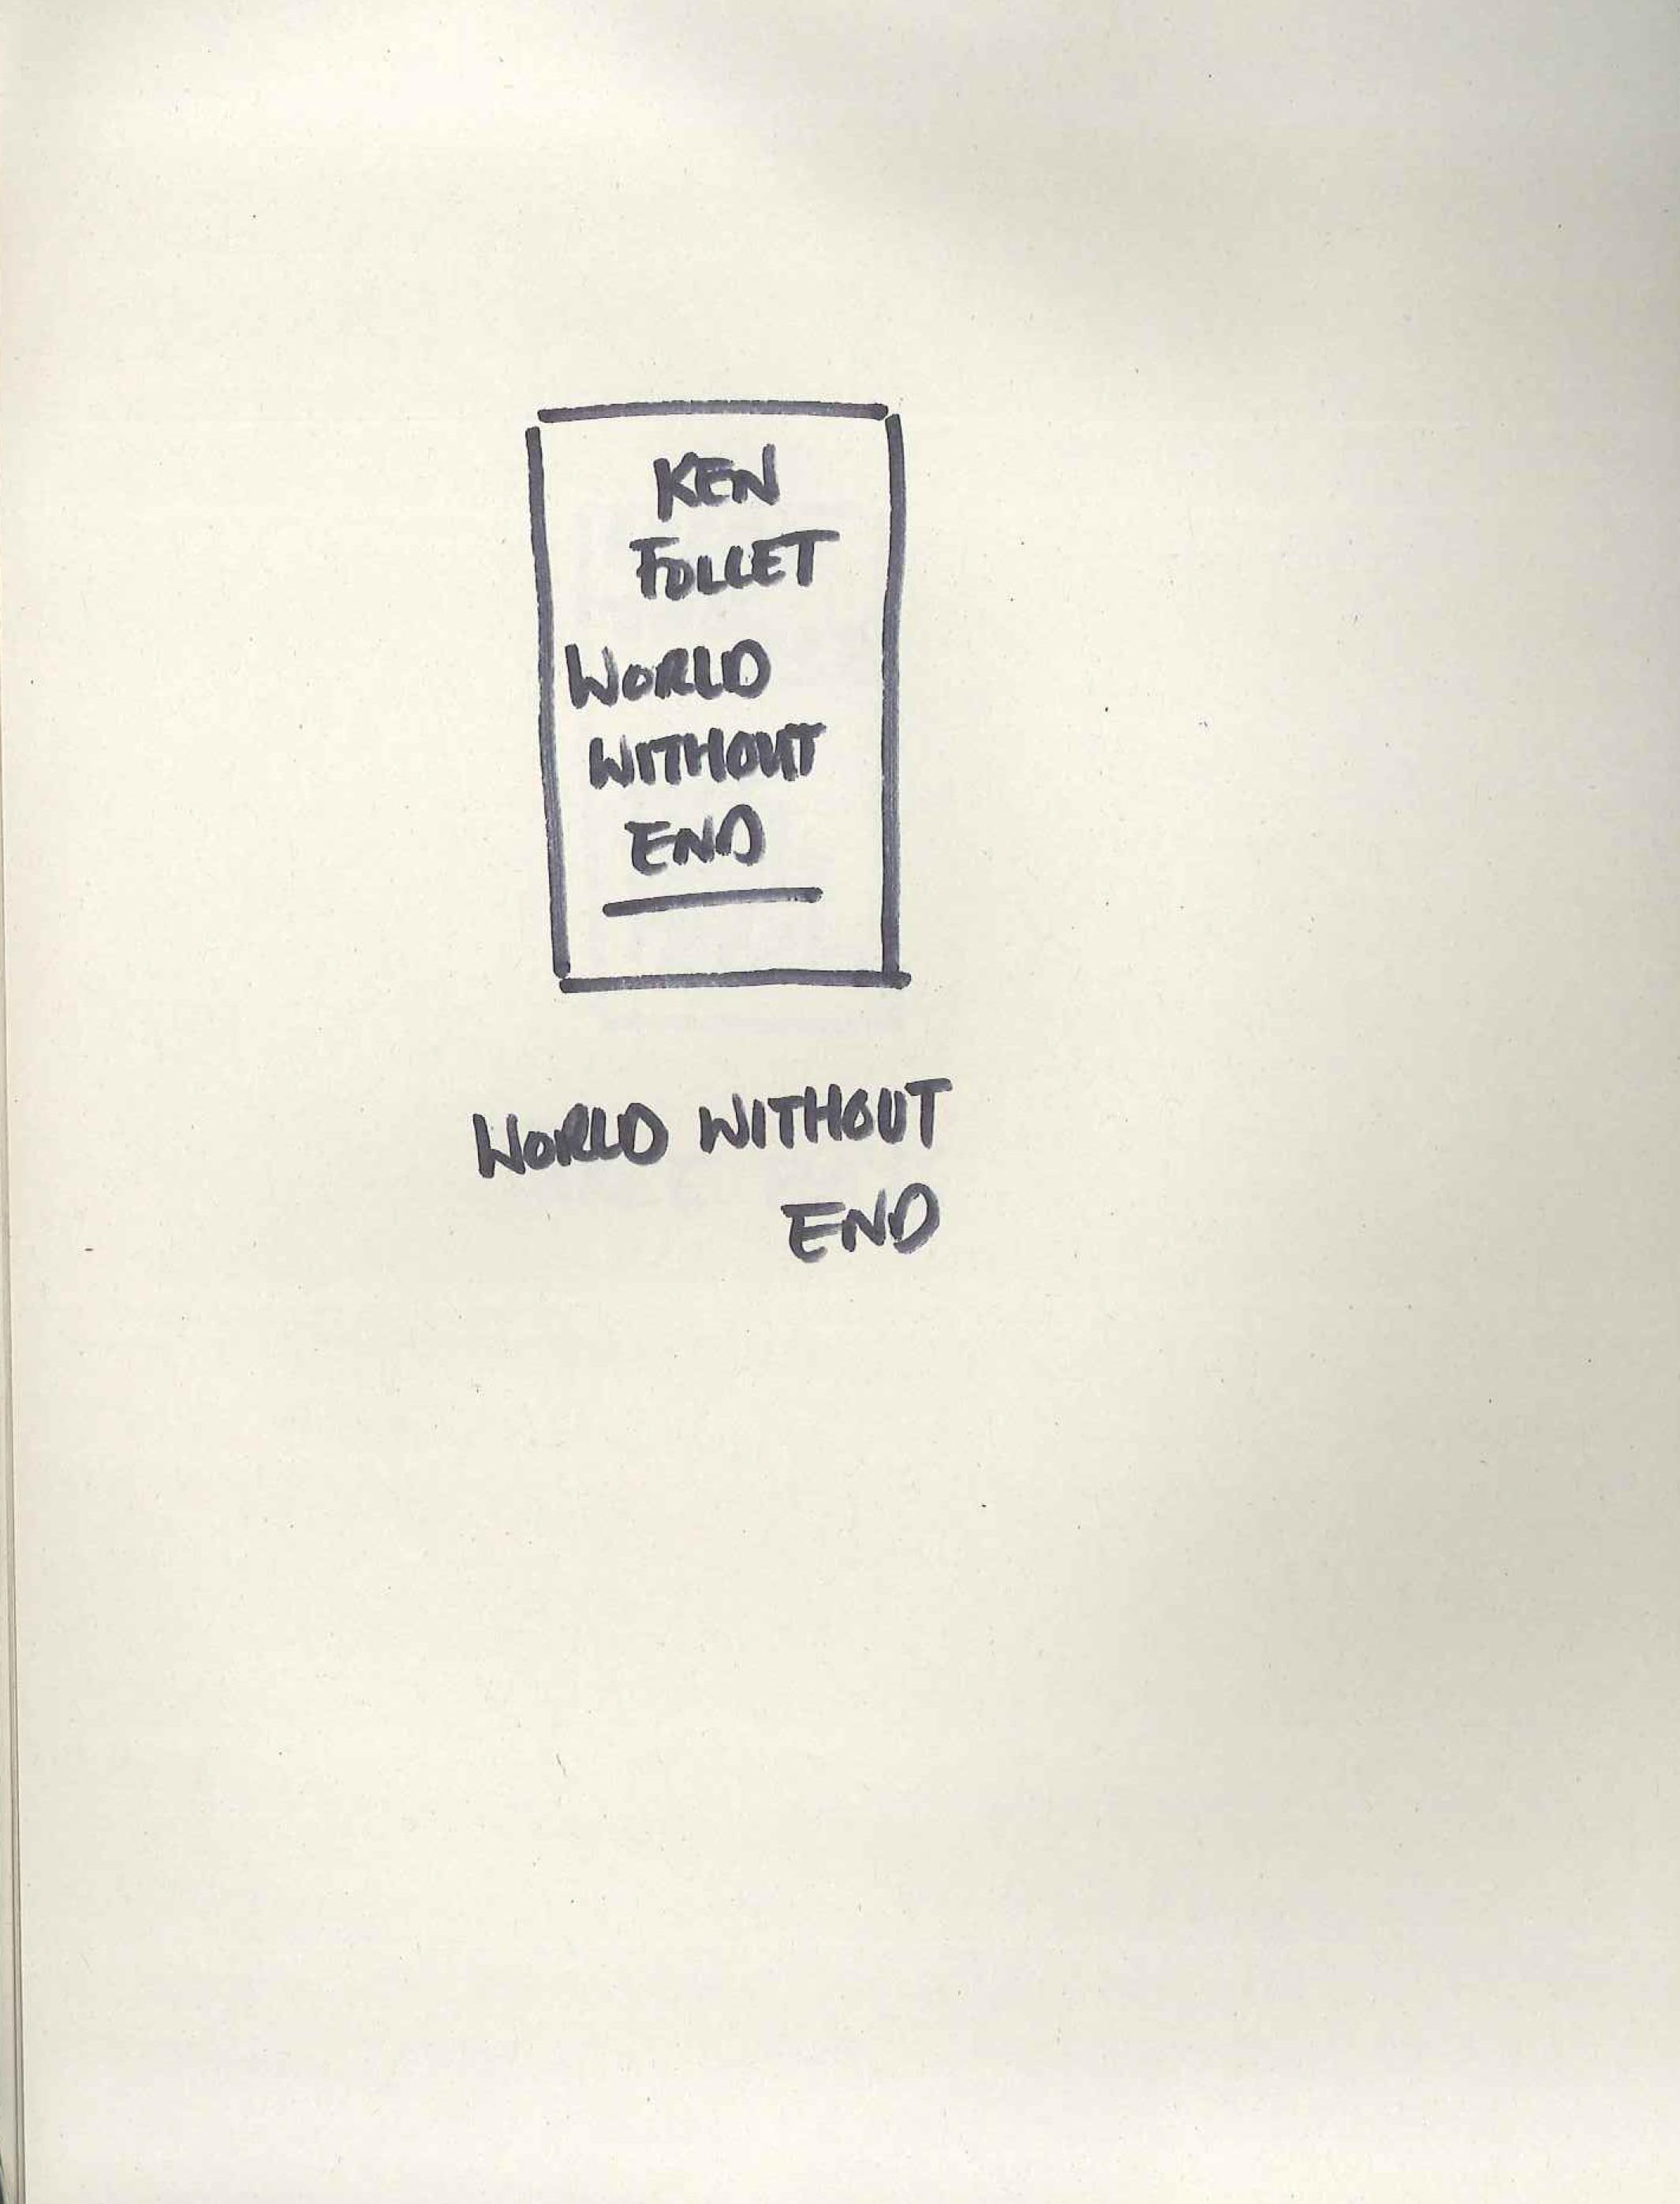 KEN
FOLLET
WORLD
WITHOUT
END
WORLD WITHOUT
END